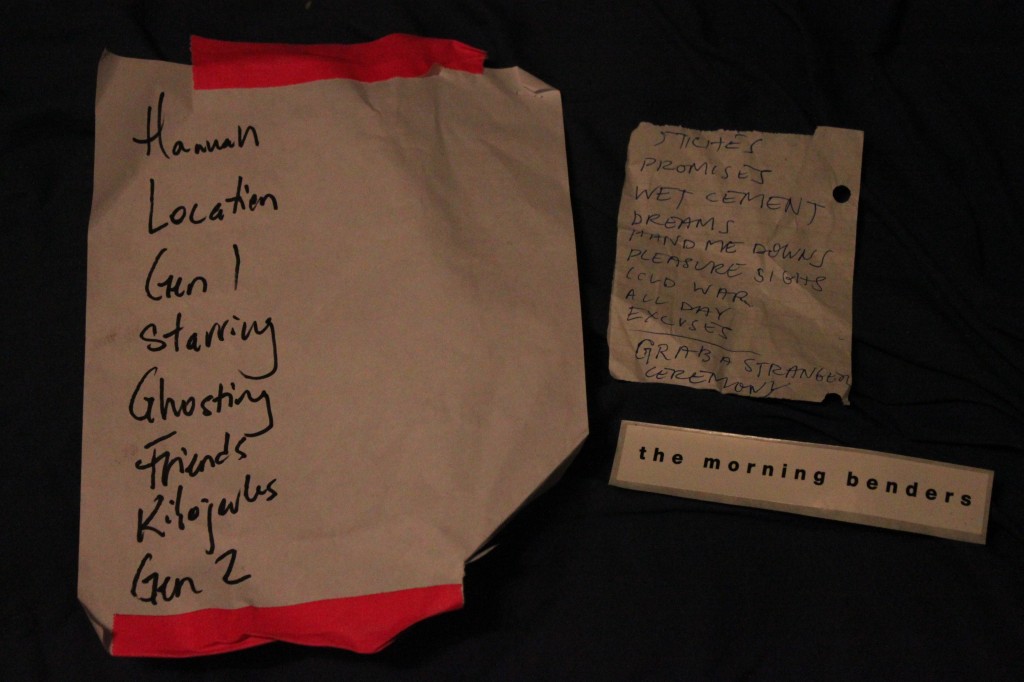 Hannah
Location
Gen 1
Starring
Ghosting
Friends
Kilojoules
Gen 2
STICHES
PROMISES
WET CEMENT
DREAMS
HAND ME DOWNS
PLEASURE SIGHS
COLD WAR
ALL DAY
EXCUSES
GRAB A STRANGER
CEREMONY
the morning benders